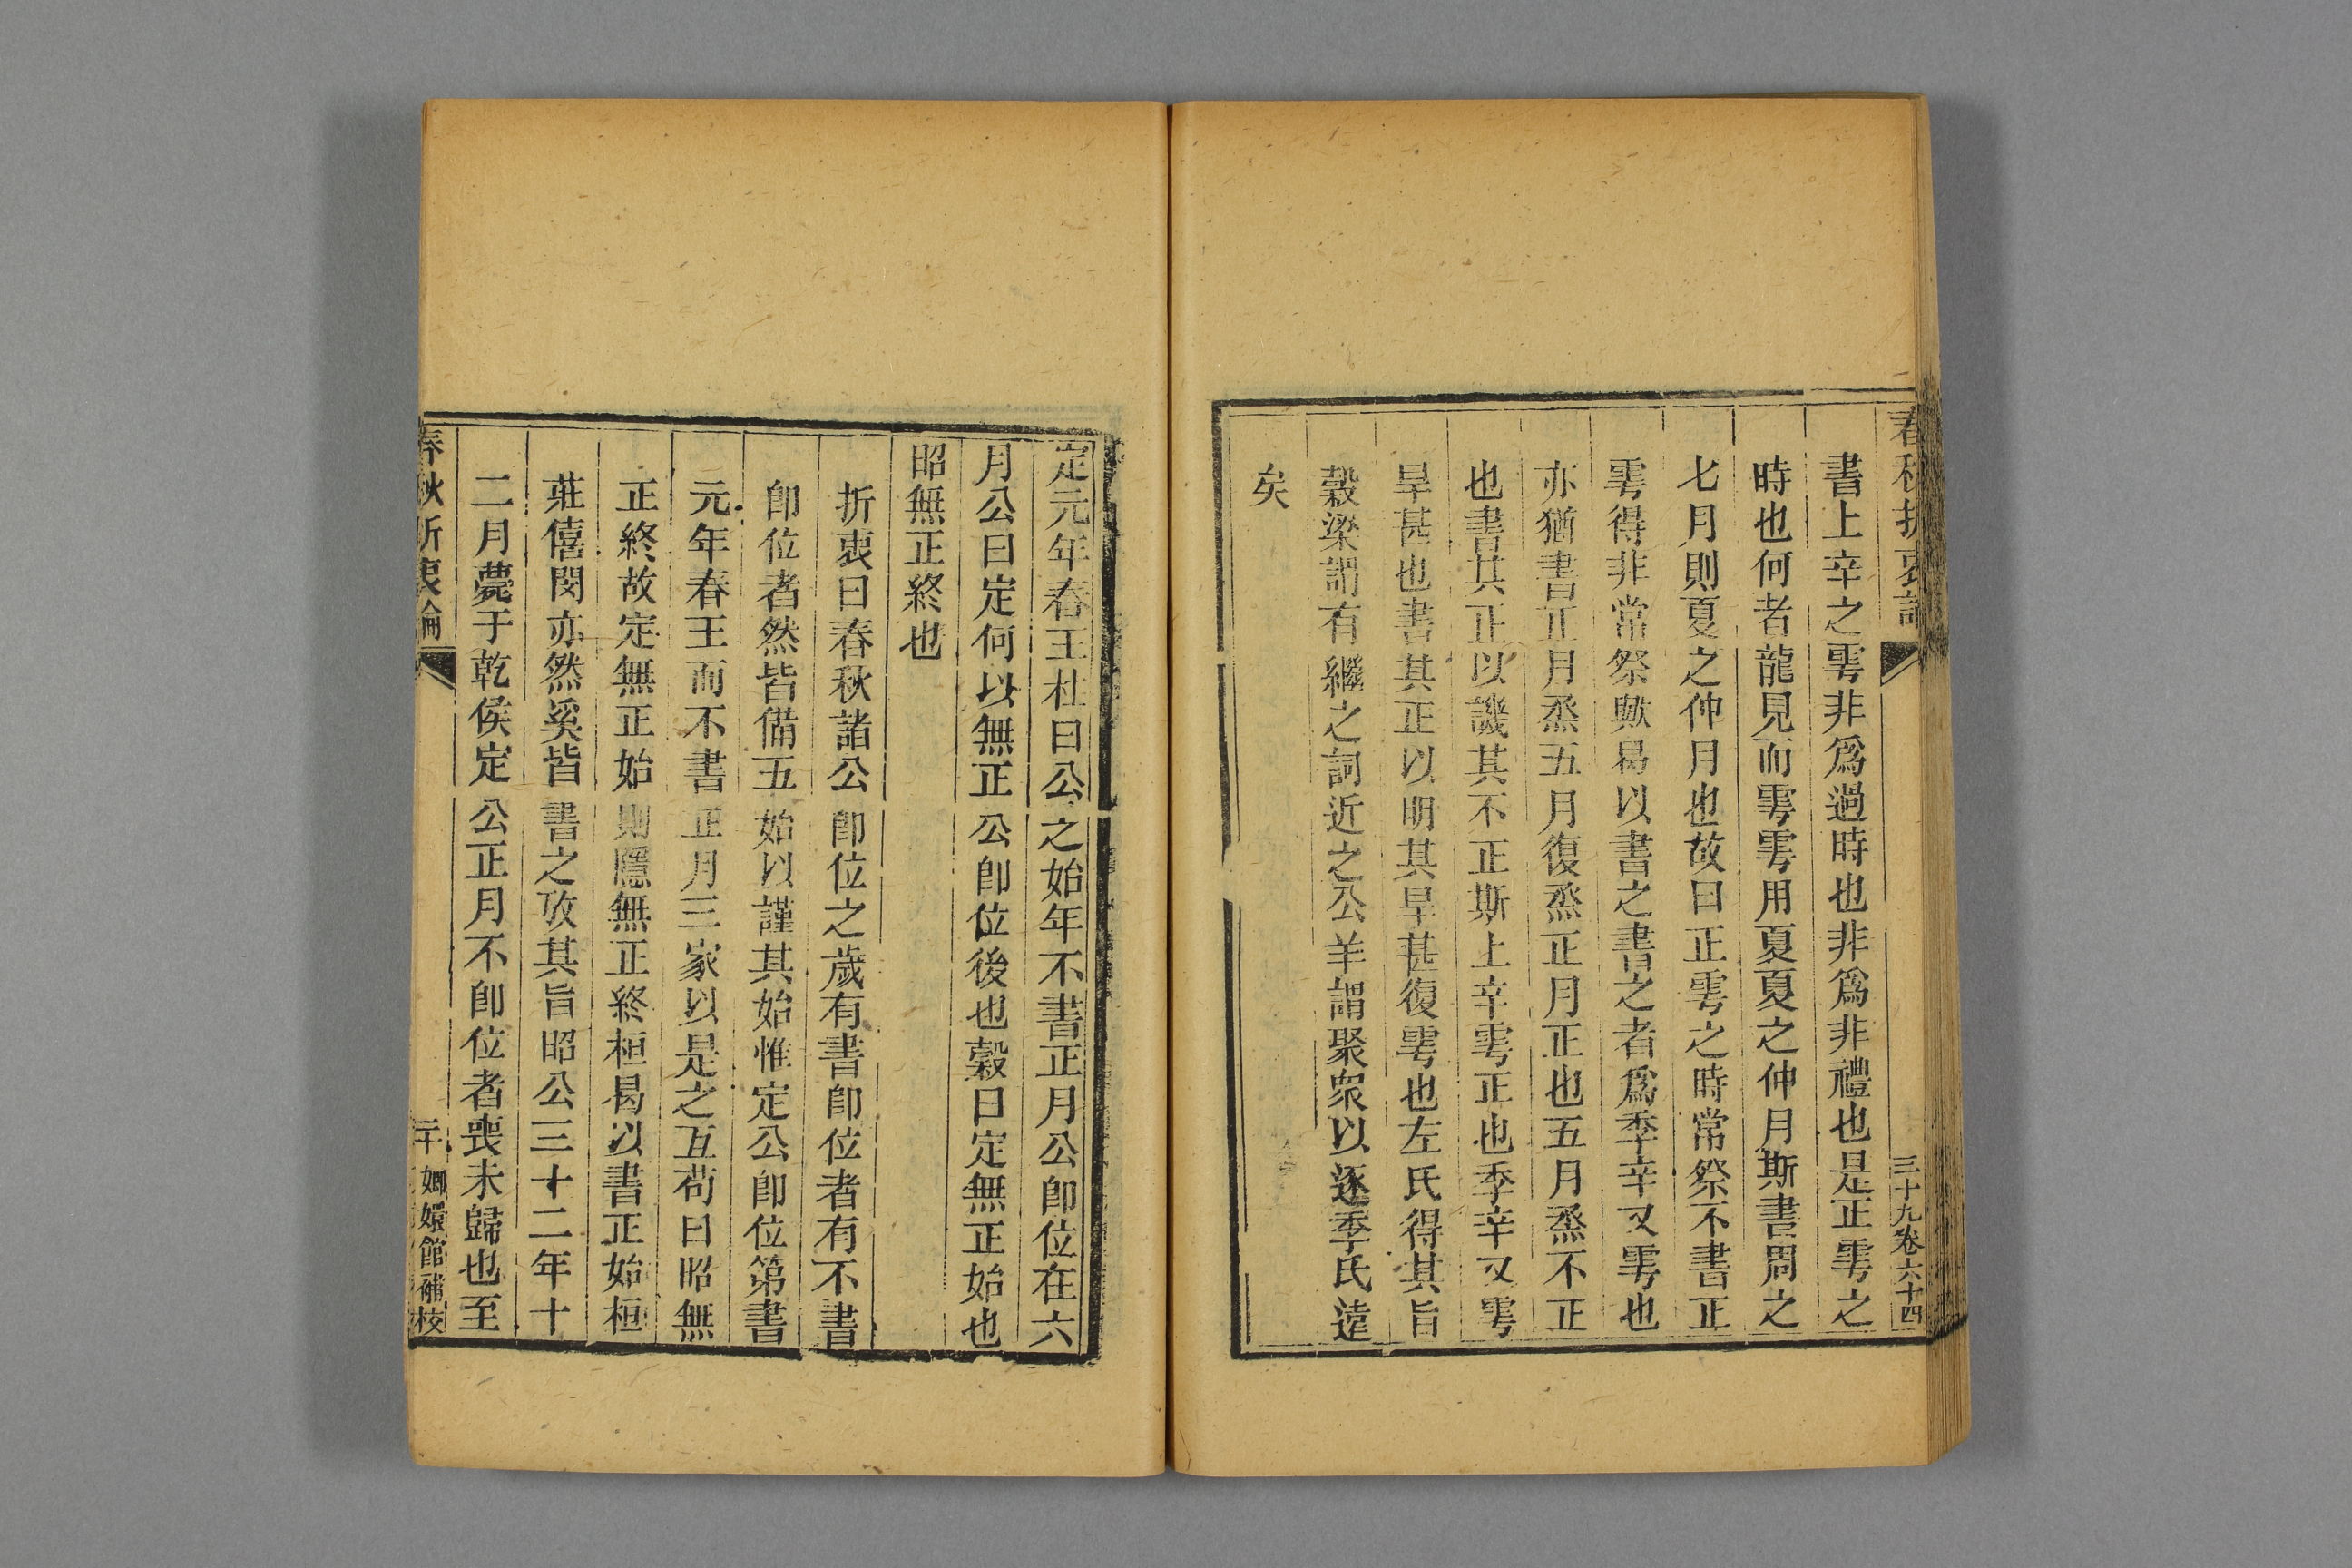 春秋折衷論
三十九卷六十四
書上辛之雩非爲過時也非爲非禮也是正雩之
時也何者龍見而雩雩用夏夏之仲月斯書周之
七月則夏之仲月也故曰正雩之時常祭不書正
雩得非常祭歟曷以書之書之者爲季辛又雩也
亦猶書正月烝五月復烝正月正也五月烝不正
也書其正以譏其不正斯上辛雩正也季辛又雩
旱甚也書其正以明其旱甚復雩也左氏得其旨
穀梁謂有繼之詞近之公羊謂聚衆以逐季氏遠
矣
定元年春王杜曰公之始年不書正月公卽位在六
月公曰定何以無正公卽位後也穀曰定無正始也
昭無正終也
折衷曰春秋諸公卽位之歲有書卽位者有不書
卽位者然皆備五始以謹其始惟定公卽位第書
元年春王而不書正月三家以是之互苟曰昭無
正終故定無正始則隱無正終桓曷以書正始桓
莊僖閔亦然奚皆書之攷其旨昭公三十二年十
二月薨于乾侯定公正月不卽位者喪未歸也至
春秋折衷論
嫏嬛館補校